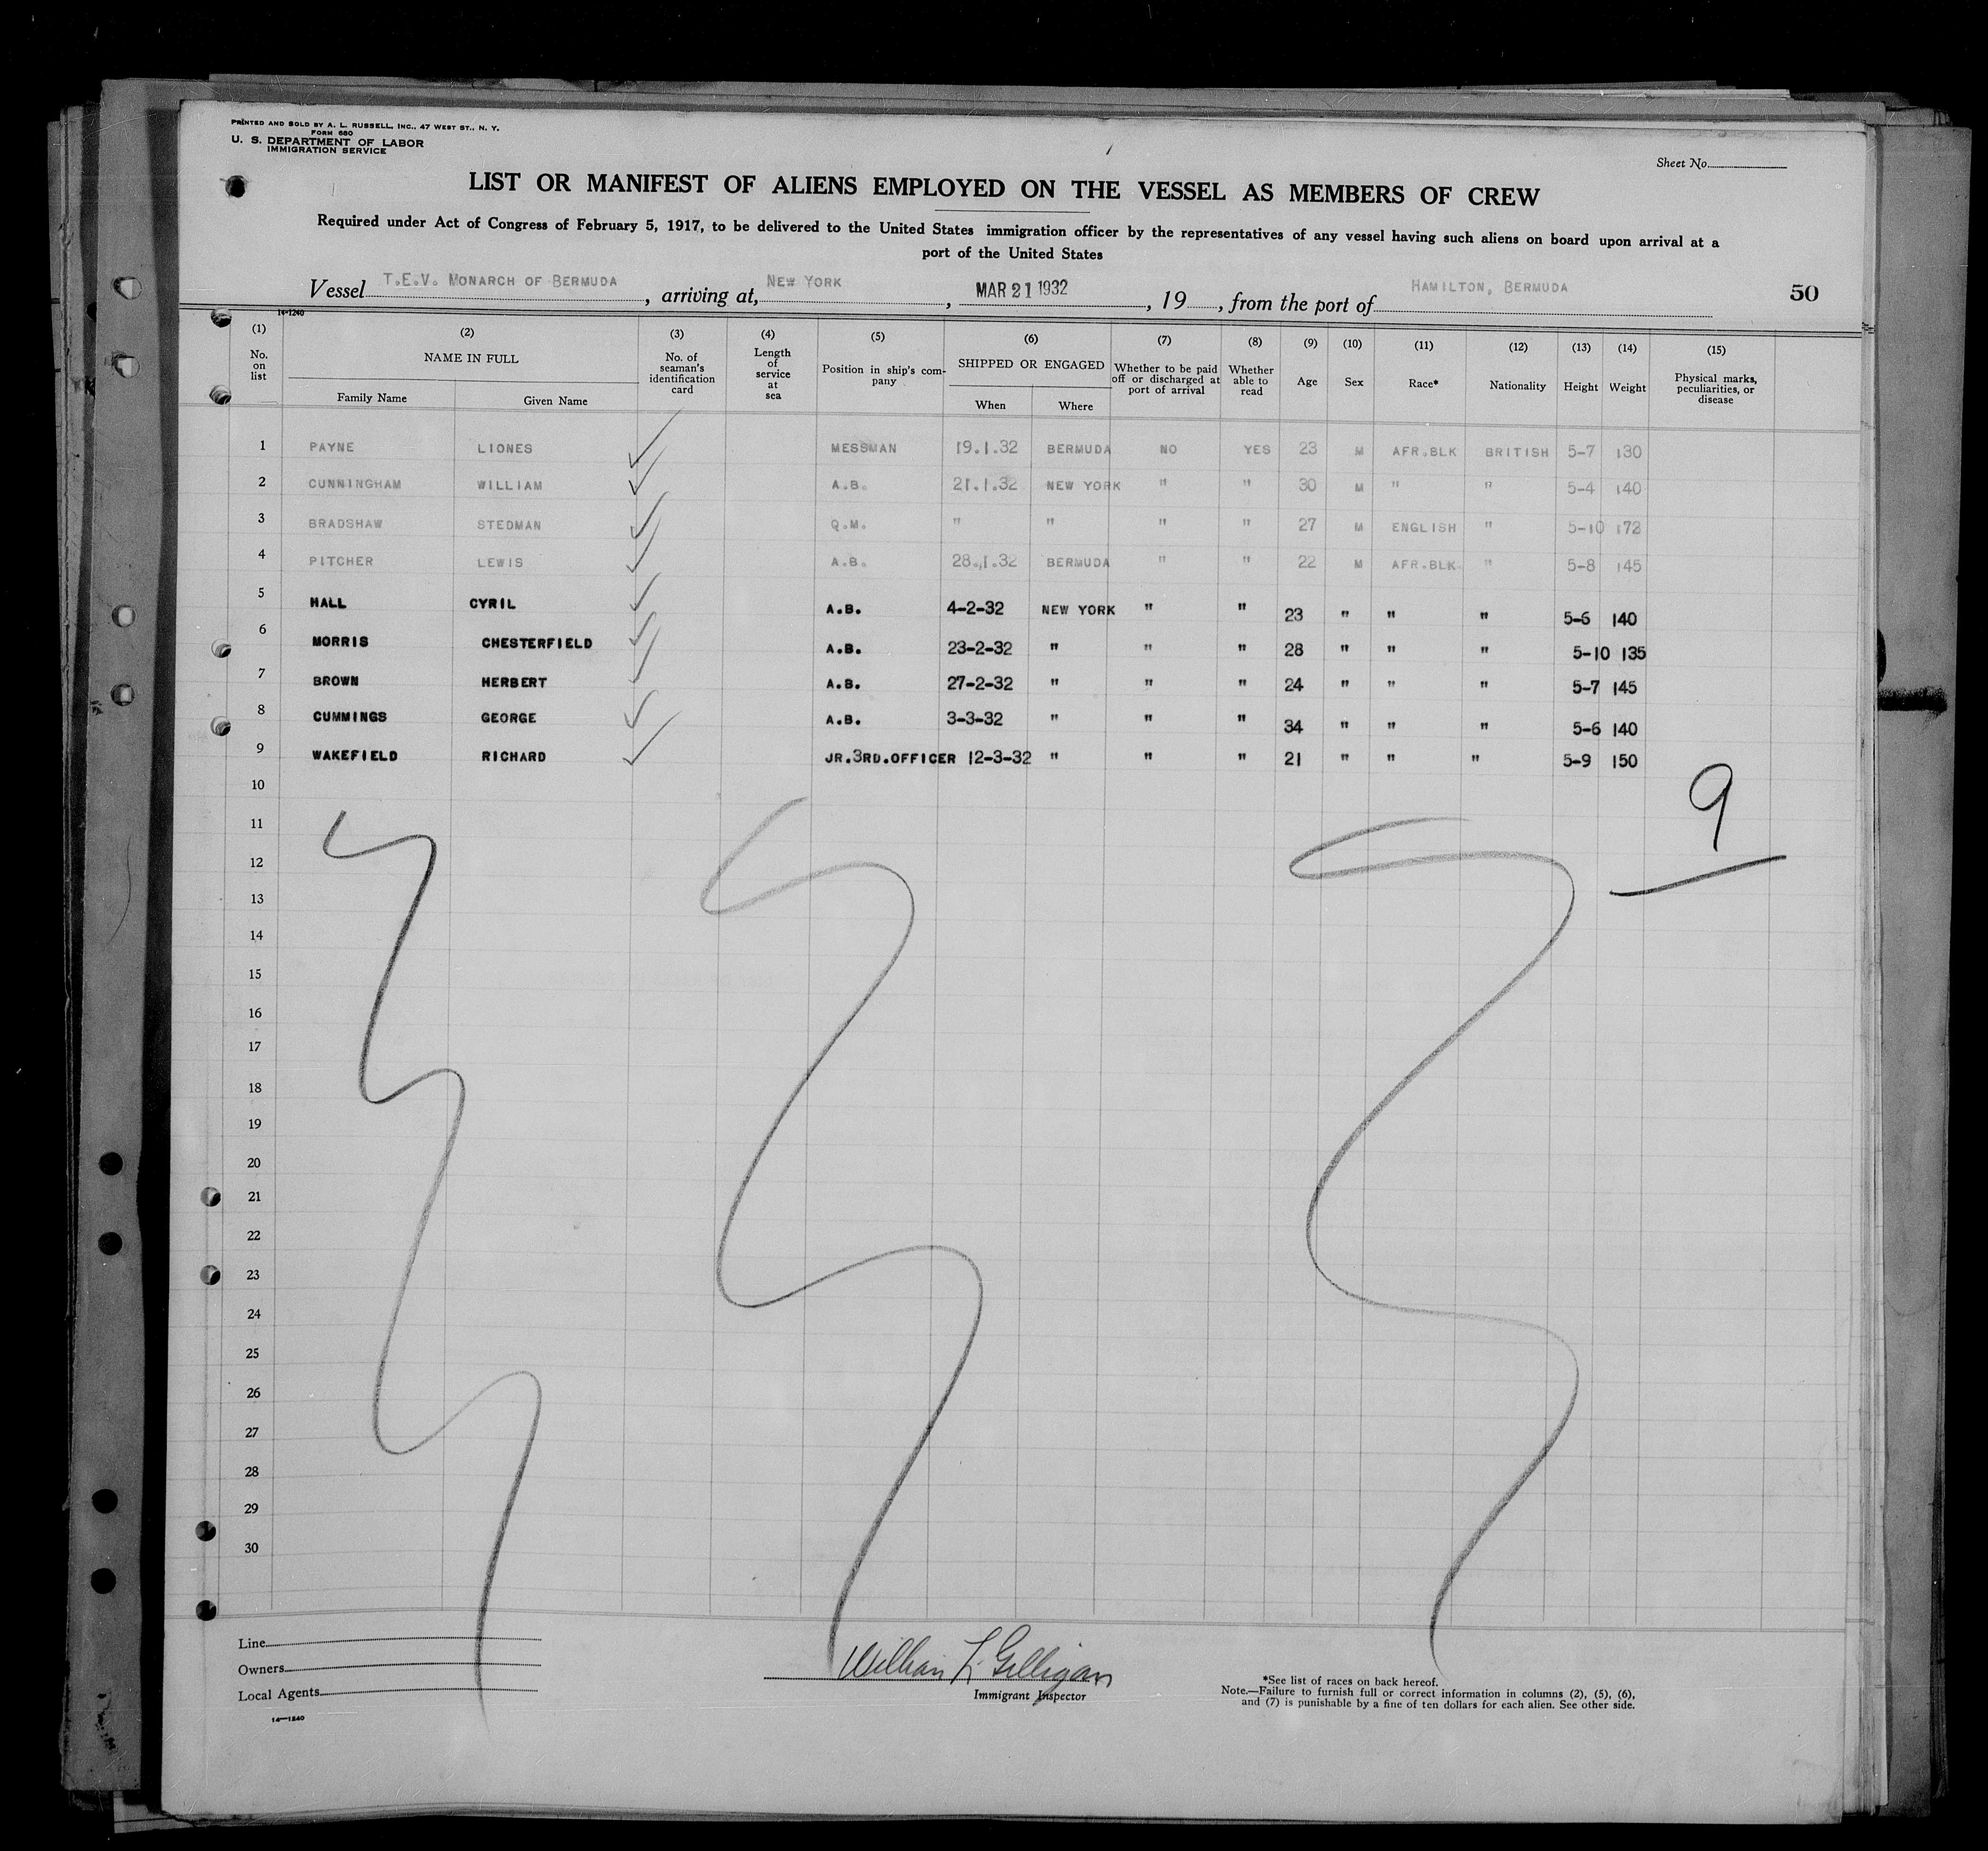 PRINTED AND SOLD BY A. L. RUSSELL, INC., 47 WEST ST., N. Y.
FORM 680
U. S. DEPARTMENT OF LABOR
IMMIGRATION SERVICE
Sheet No.
LIST OR MANIFEST OF ALIENS EMPLOYED ON THE VESSEL AS MEMBERS OF CREW
Required under Act of Congress of February 5, 1917, to be delivered to the United States immigration officer by the representatives of any vessel having such aliens on board upon arrival at a
port of the United States
Vessel T.E.V. MONARCH OF BERMUDA, arriving at, NEW YORK, MAR 21 1932, 19, from the port of HAMILTON, BERMUDA 50
14-1240
(1) No. on list (2) NAME IN FULL Family Name Given Name (3) No. of seaman's identification card (4) Length of service at sea (5) Position in ship's com-pany (6) SHIPPED OR ENGAGED When Where (7) Whether to be paid off or discharged at port of arrival (8) Whether able to read (9) Age (10) Sex (11) Race* (12) Nationality (13) Height (14) Weight (15) Physical marks, peculiarities, or disease
1 PAYNE LIONES MESSMAN 19.1.32 BERMUDA NO YES 23 M AFR.BLK BRITISH 5-7 130
2 CUNNINGHAM WILLIAM A.B. 21.1.32 NEW YORK " " 30 M " " 5-4 140
3 BRADSHAW STEDMAN Q.M. " " " " 27 M ENGLISH " 5-10 172
4 PITCHER LEWIS A.B. 28.1.32 BERMUDA " " 22 M AFR.BLK. " 5-8 145
5 HALL CYRIL A.B. 4-2-32 NEW YORK " " 23 " " " 5-6 140
6 MORRIS CHESTERFIELD A.B. 23-2-32 " " " 28 " " " 5-10 135
7 BROWN HERBERT A.B. 27-2-32 " " " 24 " " " 5-7 145
8 CUMMINGS GEORGE A.B. 3-3-32 " " " 34 " " " 5-6 140
9 WAKEFIELD RICHARD JR.3RD.OFFICER 12-3-32 " " " 21 " " " 5-9 150
10
9
11
12
13
14
15
16
17
18
19
20
21
22
23
24
25
26
27
28
29
30
Line
Owners
Local Agents
14-1240
William L. Gilligan
Immigrant Inspector
*See list of races on back hereof.
Note.—Failure to furnish full or correct information in columns (2), (5), (6),
and (7) is punishable by a fine of ten dollars for each alien. See other side.